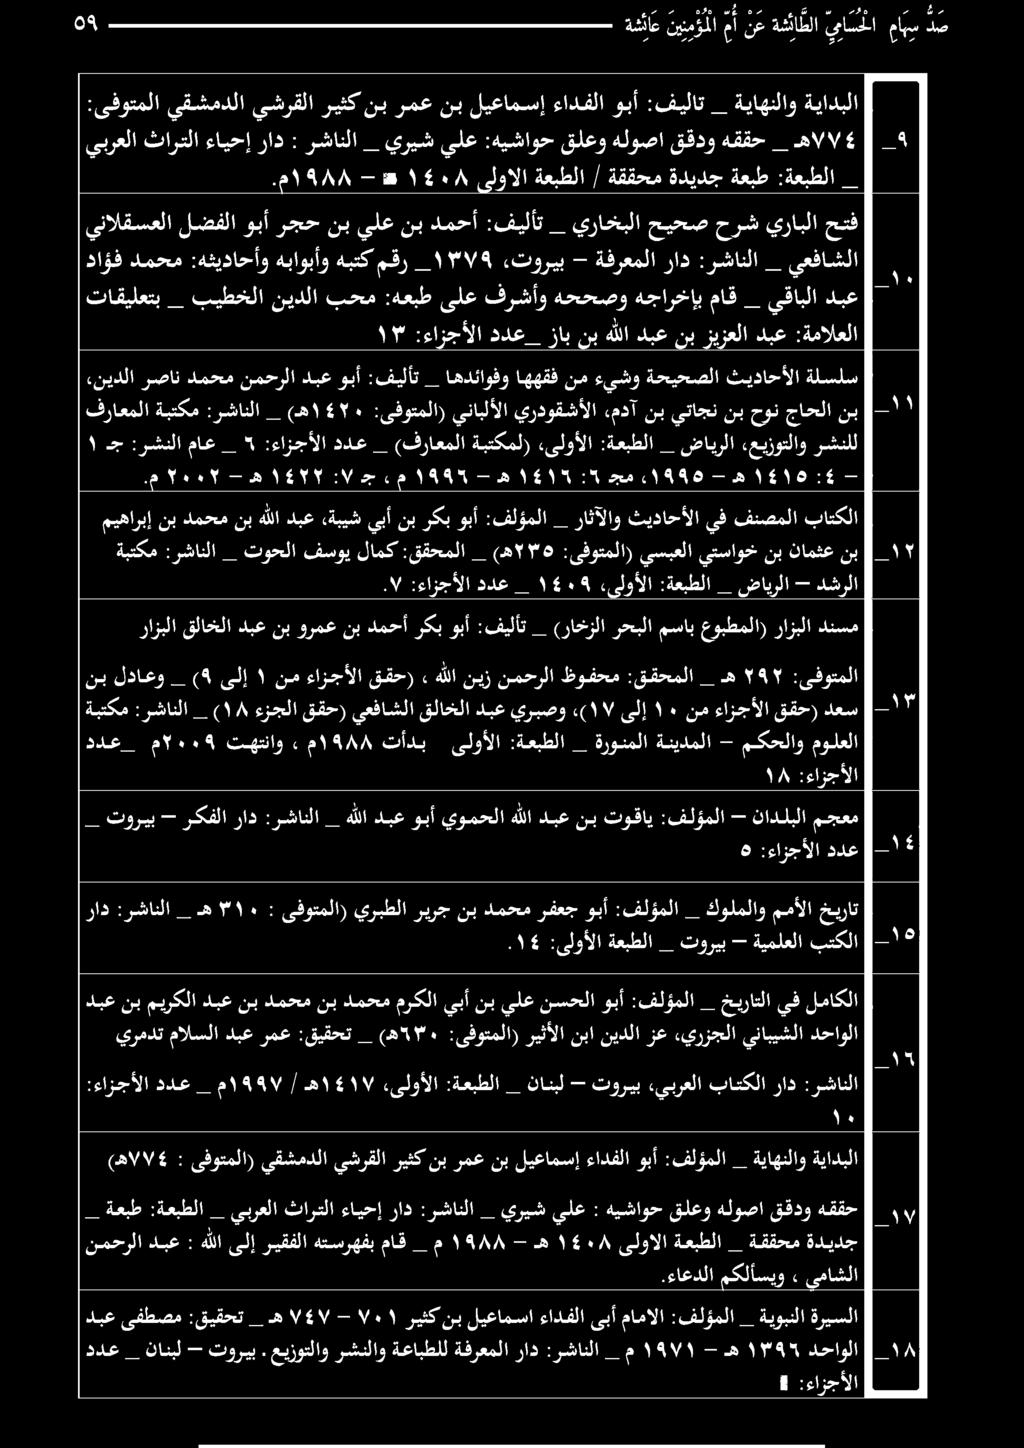 صَدُّ سِهَامِ الْحُسَامِيِّ الطَّائِشة عَنْ أُمِّ الْمُؤْمِنِينَ عَائِشة ٥٩
٩_ البداية والنهاية _ تاليف: أبو الفداء إسماعيل بن عمر بن كثير القرشي الدمشقي المتوفى:
٧٧٤هـ _ حققه ودقق اصوله وعلق حواشيه: علي شيري _ الناشر : دار إحياء التراث العربي
_ الطبعة: طبعة جديدة محققة / الطبعة الاولى ١٤٠٨ – ١٩٨٨م.
١٠_ فتح الباري شرح صحيح البخاري _ تأليف: أحمد بن علي بن حجر أبو الفضل العسقلاني
الشافعي _ الناشر: دار المعرفة – بيروت، ١٣٧٩_ رقم كتبه وأبوابه وأحاديثه: محمد فؤاد
عبد الباقي _ قام بإخراجه وصححه وأشرف على طبعه: محب الدين الخطيب _ بتعليقات
العلامة: عبد العزيز بن عبد الله بن باز _عدد الأجزاء: ١٣
١١_ سلسلة الأحاديث الصحيحة وشيء من فقهها وفوائدها _ تأليف: أبو عبد الرحمن محمد ناصر الدين،
بن الحاج نوح بن نجاتي بن آدم، الأشقودري الألباني (المتوفى: ١٤٢٠هـ) _ الناشر: مكتبة المعارف
للنشر والتوزيع، الرياض _ الطبعة: الأولى، (لمكتبة المعارف) _ عدد الأجزاء: ٦ _ عام النشر: جـ ١
– ٤: ١٤١٥ هـ – ١٩٩٥، مجـ ٦: ١٤١٦ هـ – ١٩٩٦ م ، جـ ٧: ١٤٢٢ هـ – ٢٠٠٢ م.
١٢_ الكتاب المصنف في الأحاديث والآثار _ المؤلف: أبو بكر بن أبي شيبة، عبد الله بن محمد بن إبراهيم
بن عثمان بن خواستي العبسي (المتوفى: ٢٣٥هـ) _ المحقق: كمال يوسف الحوت _ الناشر: مكتبة
الرشد – الرياض _ الطبعة: الأولى، ١٤٠٩ _ عدد الأجزاء: ٧.
مسند البزار (المطبوع باسم البحر الزخار) _ تأليف: أبو بكر أحمد بن عمرو بن عبد الخالق البزار
المتوفى: ٢٩٢ هـ _ المحقق: محفوظ الرحمن زين الله ، (حقق الأجزاء من ١ إلى ٩) _ وعادل بن
١٣_ سعد (حقق الأجزاء من ١٠ إلى ١٧)، وصبري عبد الخالق الشافعي (حقق الجزء ١٨) _ الناشر: مكتبة
العلوم والحكم – المدينة المنورة _ الطبعة: الأولى بدأت ١٩٨٨م ، وانتهت ٢٠٠٩م _عدد
الأجزاء: ١٨
١٤_ معجم البلدان – المؤلف: ياقوت بن عبد الله الحموي أبو عبد الله _ الناشر: دار الفكر – بيروت _
عدد الأجزاء: ٥
١٥_ تاريخ الأمم والملوك _ المؤلف: أبو جعفر محمد بن جرير الطبري (المتوفى : ٣١٠ هـ _ الناشر: دار
الكتب العلمية – بيروت _ الطبعة الأولى: ١٤.
الكامل في التاريخ _ المؤلف: أبو الحسن علي بن أبي الكرم محمد بن محمد بن عبد الكريم بن عبد
الواحد الشيباني الجزري، عز الدين ابن الأثير (المتوفى: ٦٣٠هـ) _ تحقيق: عمر عبد السلام تدمري
١٦_ الناشر: دار الكتاب العربي، بيروت – لبنان _ الطبعة: الأولى، ١٤١٧هـ / ١٩٩٧م _ عدد الأجزاء:
١٠
البداية والنهاية _ المؤلف: أبو الفداء إسماعيل بن عمر بن كثير القرشي الدمشقي (المتوفى : ٧٧٤هـ)
١٧_ حققه ودقق اصوله وعلق حواشيه : علي شيري _ الناشر: دار إحياء التراث العربي _ الطبعة: طبعة _
جديدة محققة _ الطبعة الاولى ١٤٠٨ هـ – ١٩٨٨ م _ قام بفهرسته الفقير إلى الله : عبد الرحمن
الشامي ، ويسألكم الدعاء.
١٨_ السيرة النبوية _ المؤلف: الامام أبى الفداء اسماعيل بن كثير ٧٠١ – ٧٤٧ هـ _ تحقيق: مصطفى عبد
الواحد ١٣٩٦ هـ – ١٩٧١ م _ الناشر: دار المعرفة للطباعة والنشر والتوزيع . بيروت – لبنان _ عدد
الأجزاء: